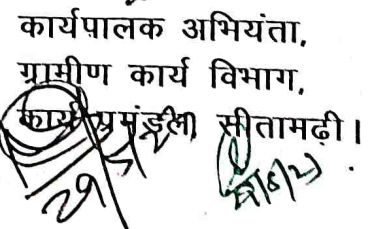 कार्यपालक अभियंता,
ग्रामीण कार्य विभाग,
कार्य प्रमंडल, सीतामढ़ी।